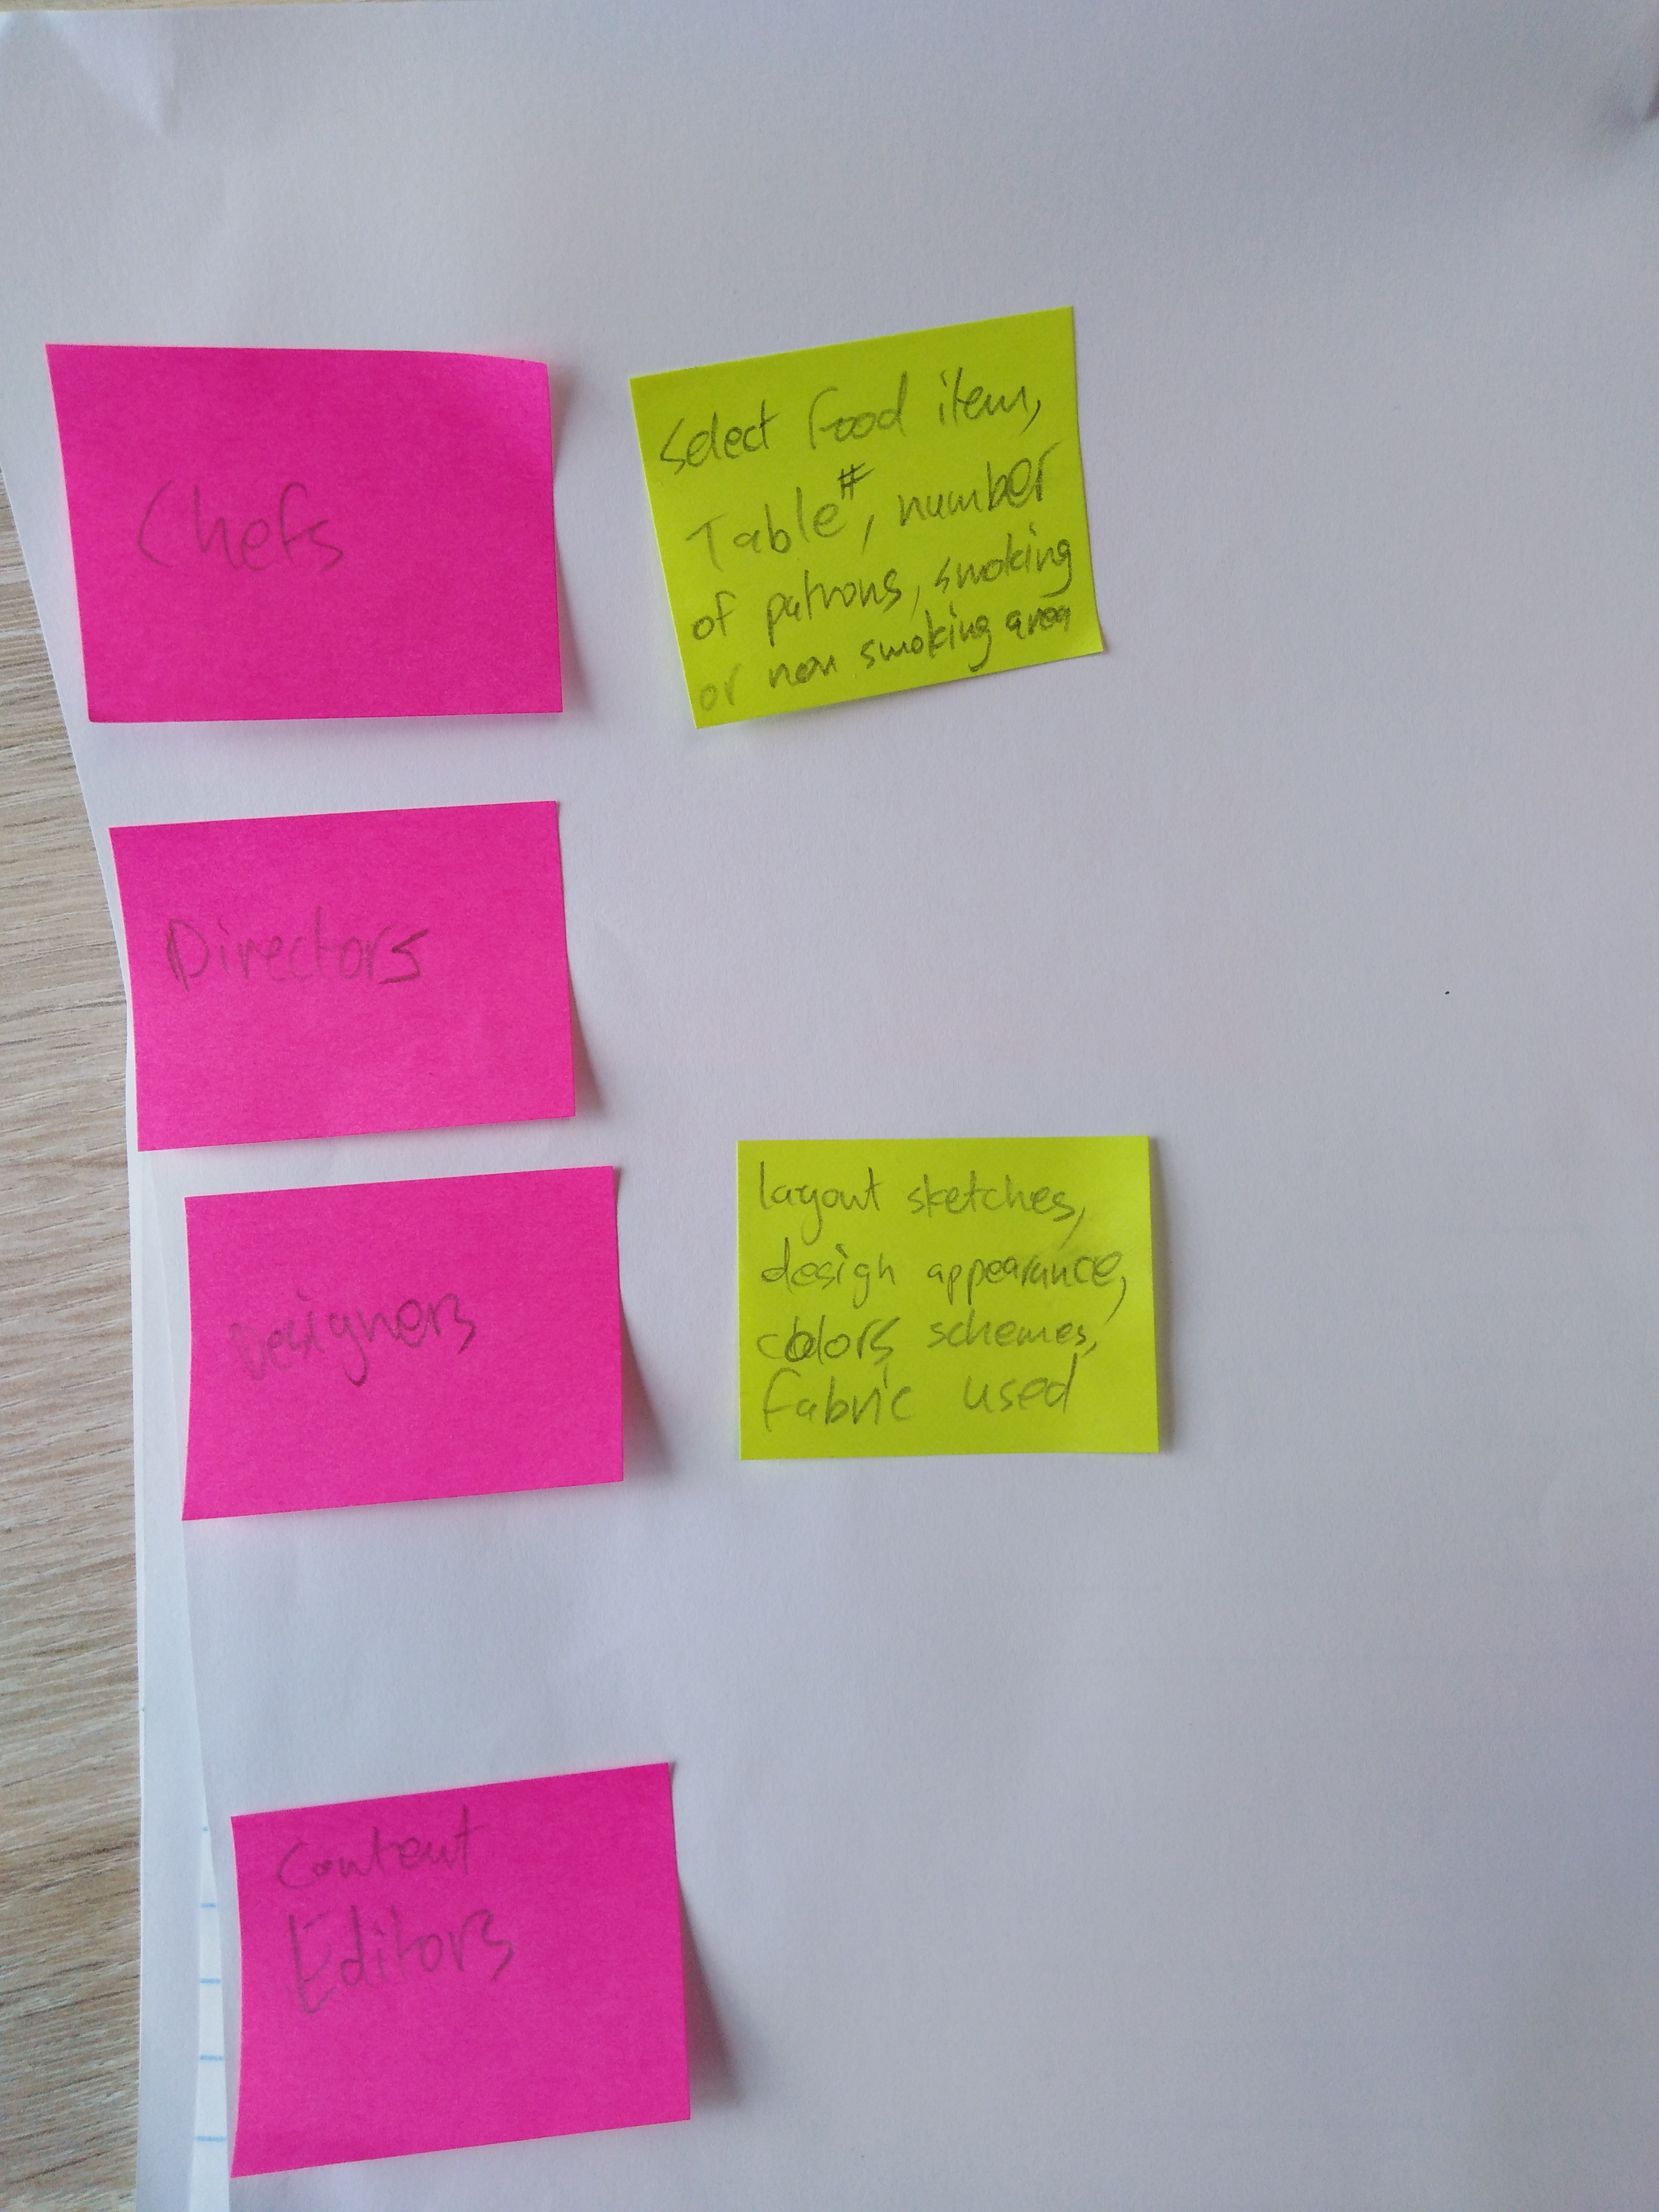 Chefs
Select Food item,
Table#, number
of patrons, smoking
or non smoking area
Directors
Designers
layout sketches,
design appearance,
colors schemes,
fabric used
Content
Editors